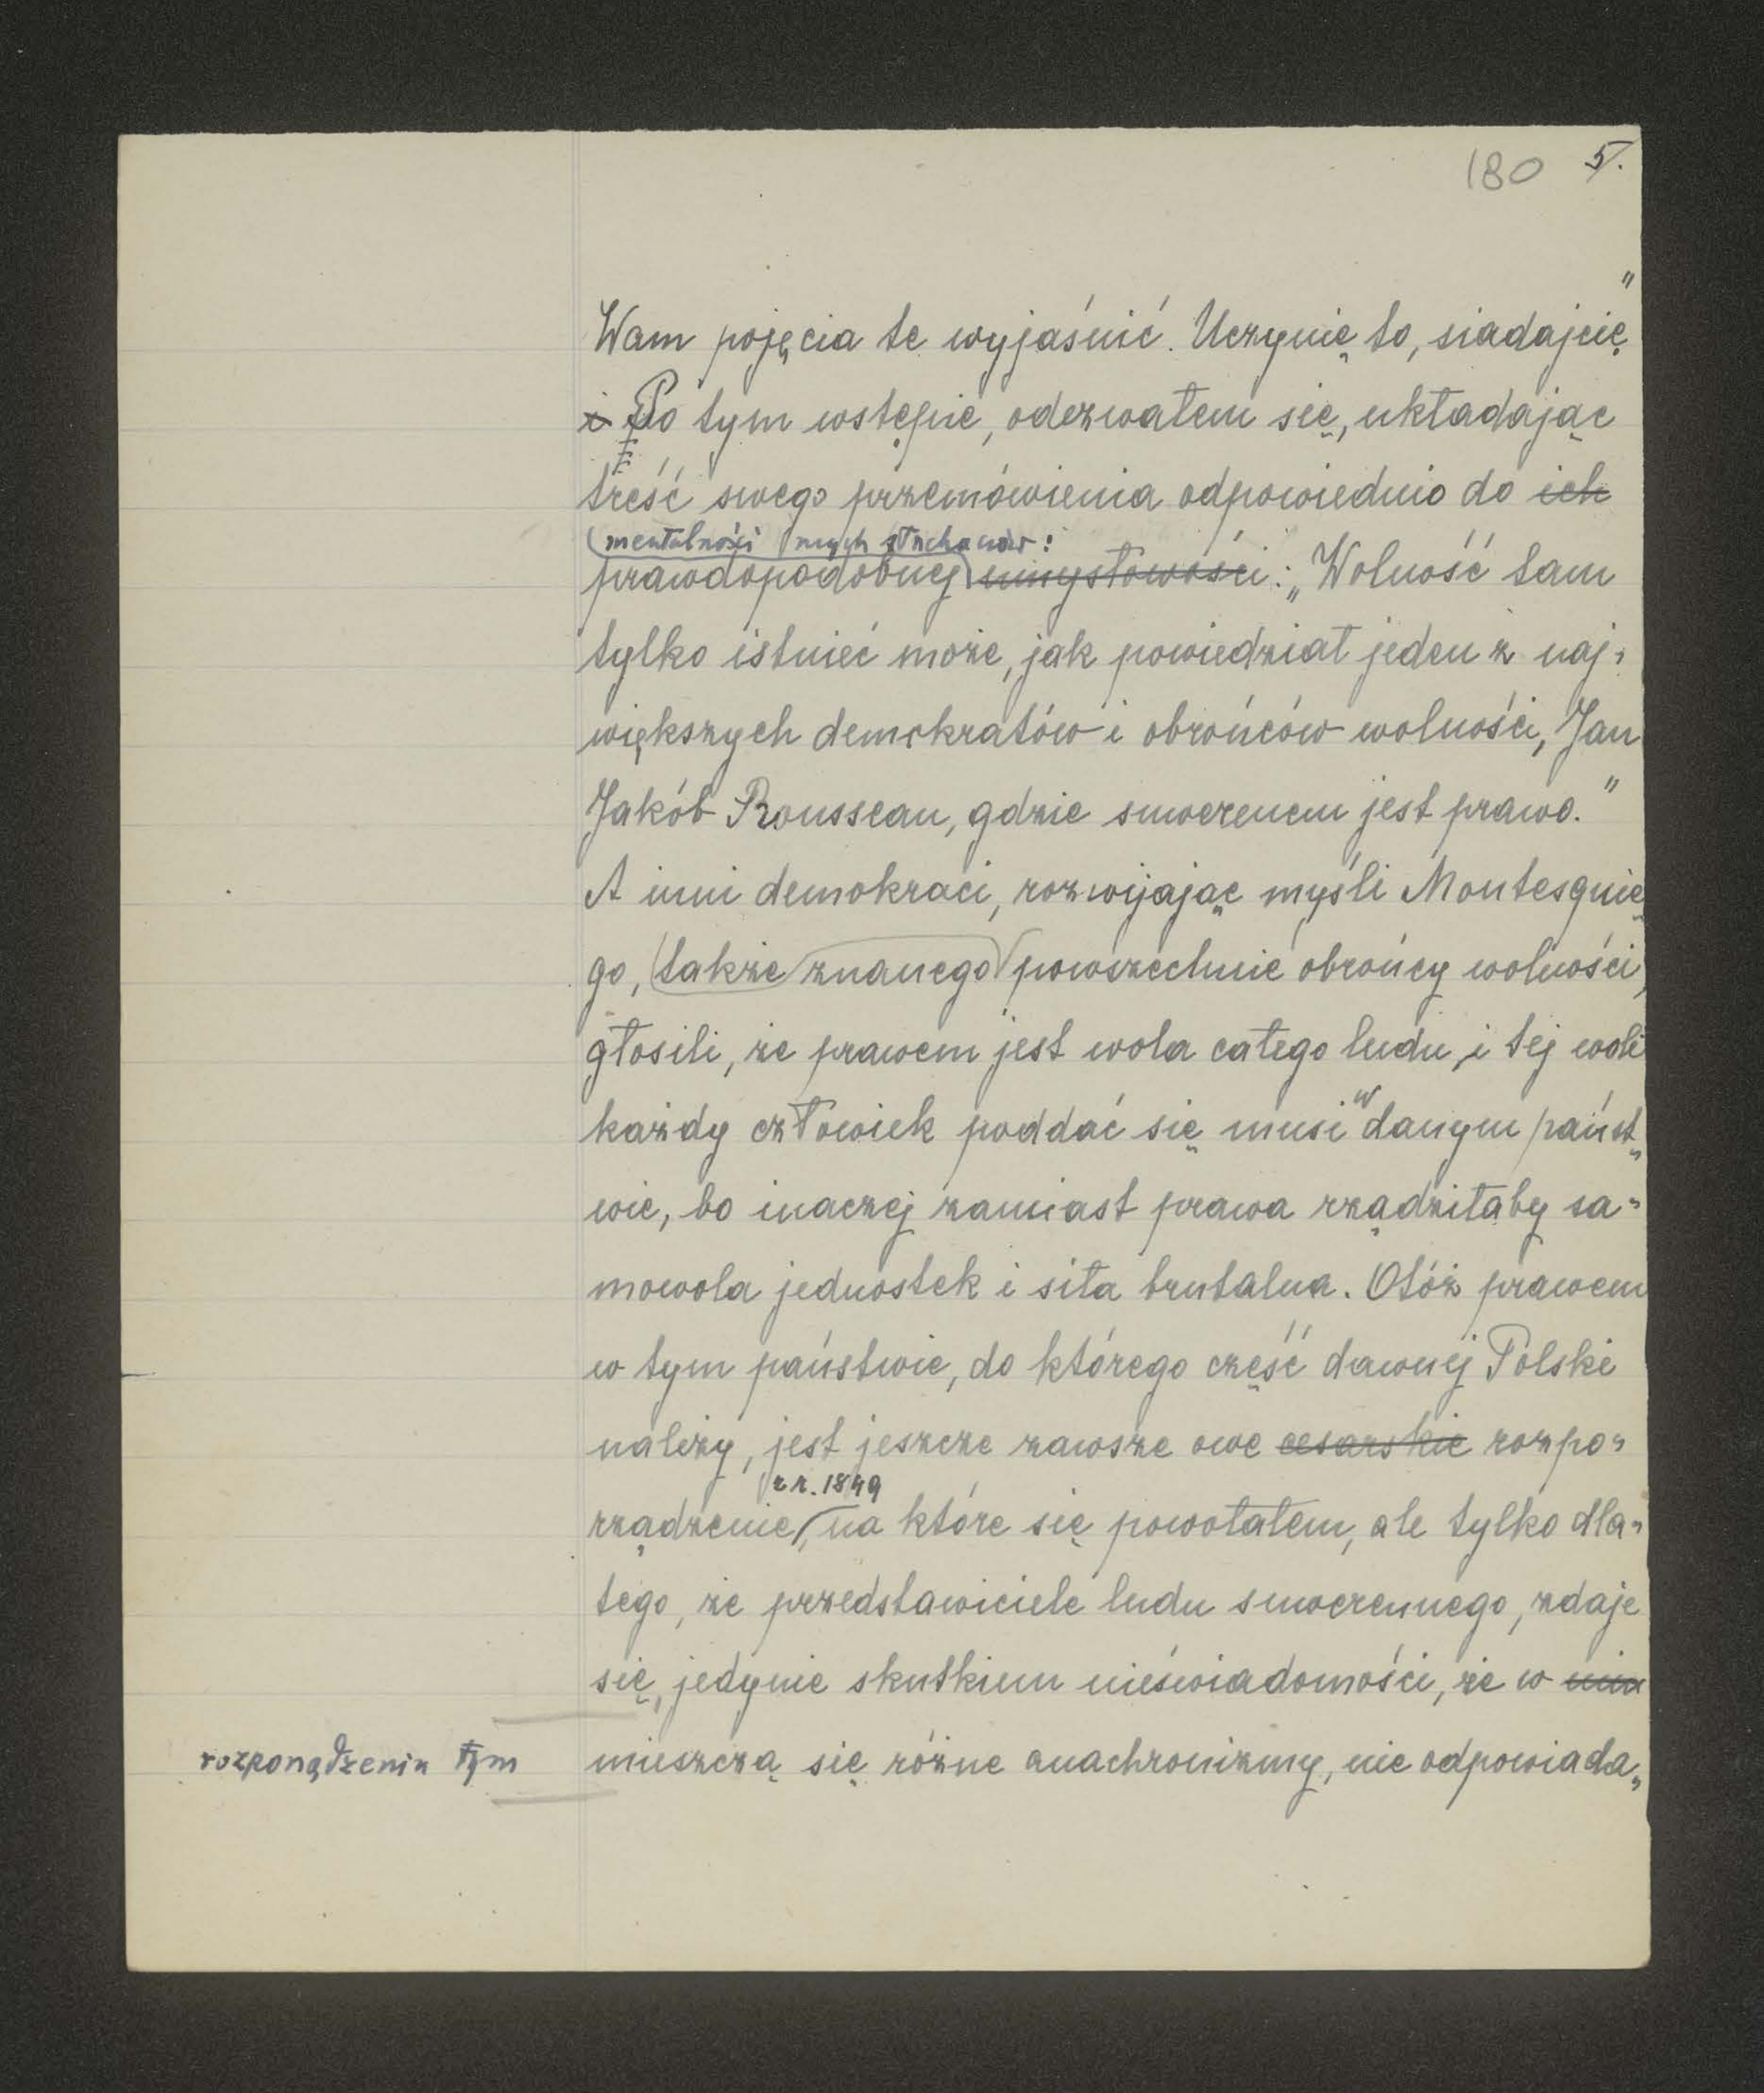 180 5.
Wam pojęcia te wyjaśnić. Uczynię to, siadajcie"
i Po tym wstępie, odezwałem się, układając
treść swego przemówienia odpowiednio do ich
mentalności mych słuchaczów:
prawdopodobnej umysłowości: „Wolność tam
tylko istnieć może, jak powiedział jeden z naj-
większych demokratów i obrońców wolności, Jan
Jakób Rousseau, gdzie suwerenem jest prawo."
A inni demokraci, rozwijając myśli Montesquie-
go, także znanego powszechnie obrońcy wolności,
głosili, że prawem jest wola całego ludu, i tej woli
każdy człowiek poddać się musi w danym państ-
wie, bo inaczej zamiast prawa rządziłaby sa-
mowola jednostek i siła brutalna. Otóż prawem
w tym państwie, do którego część dawnej Polski
należy, jest jeszcze zawsze owe cesarskie rozpo-
z r. 1849
rządzenie, na które się powołałem, ale tylko dla-
tego, że przedstawiciele ludu suwerennego, zdaje
się, jedynie skutkiem nieświadomości, że w nim
rozporządzeniu tym mieszczą się różne anachronizmy, nie odpowiada-